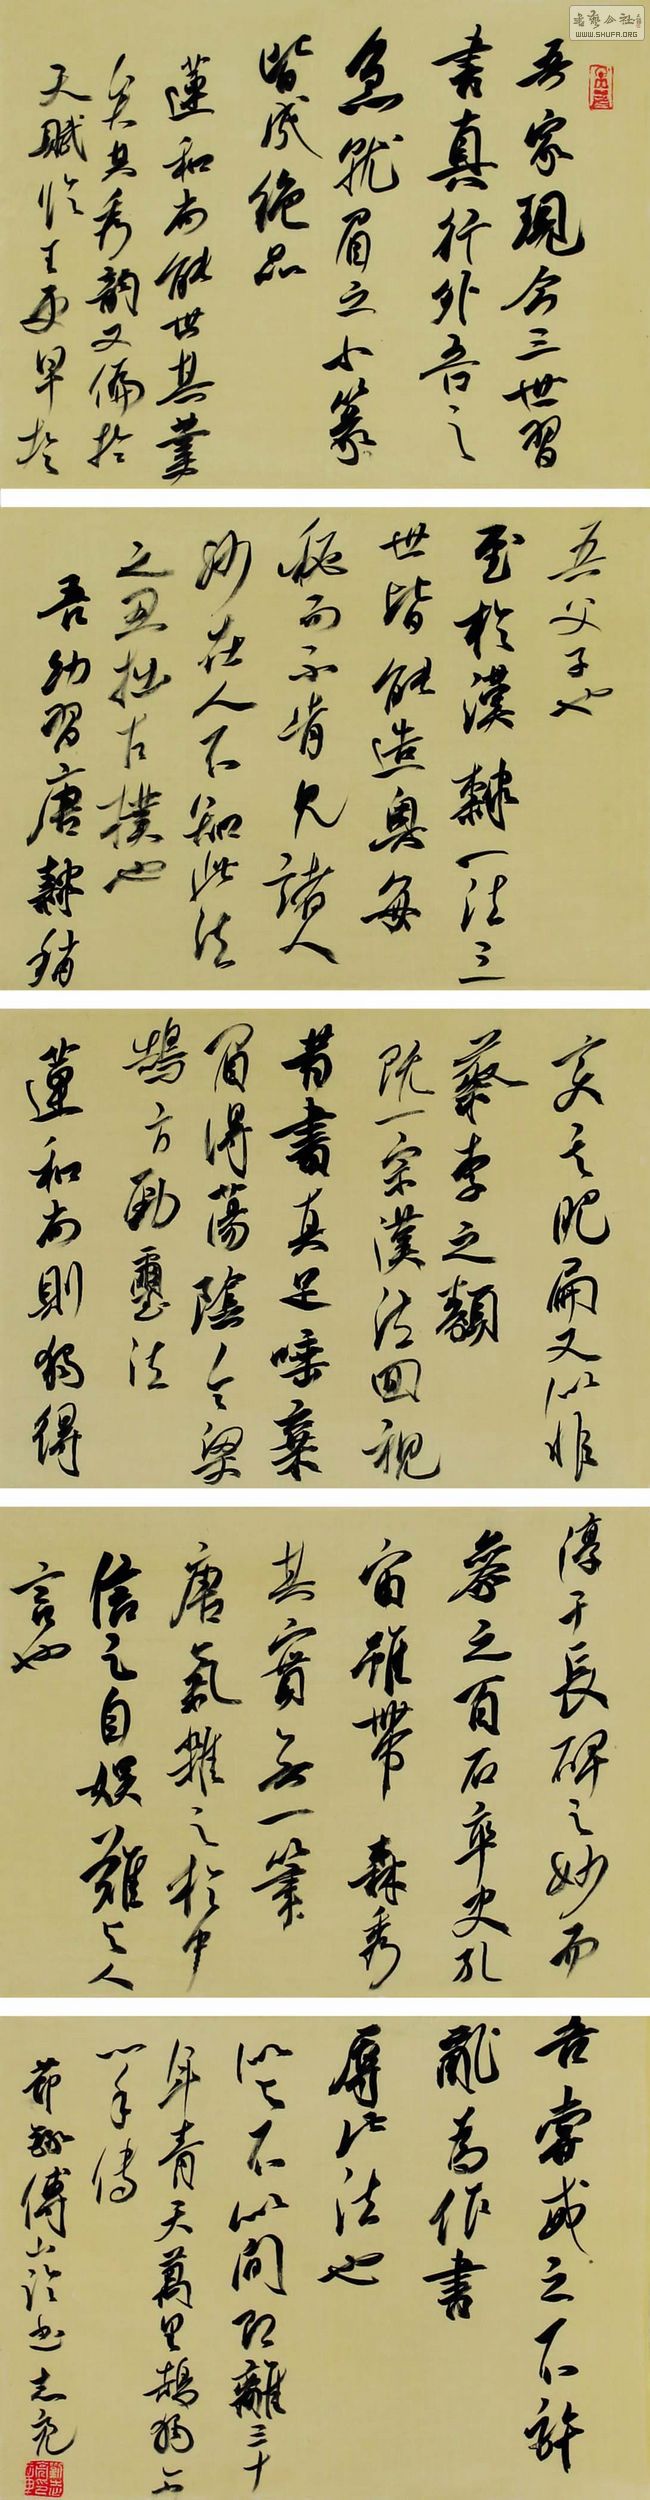 书艺公社
WWW.SHUFA.ORG
吾家現今三世習
書真行外吾之
急就眉之小篆
皆成絶品
蓮和尚能世其業
矣其秀韻又偏於
天賦臨王更早於
吾父子也
至於漢隸一法三
世皆能造奥每
秘而不肯見諸人
妙在人不知此法
之丑拙古樸也
吾幼習唐隸稍
變其肥扁又似非
蔡李之類
既一宗漢法回視
昔書真足唾棄
眉得蕩陰令梁
鵠方勁璽法
蓮和尚則獨得
淳于長碑之妙而
參之百石卒史孔
宙雖帶森秀
其實無一筆
唐氣雜之於中
信之自娱難與人
言也
吾嘗戒之不許
亂為作書
辱此法也
間即離三十
年青天萬里鵠獨不
心手傳
節録傅山論書志亮